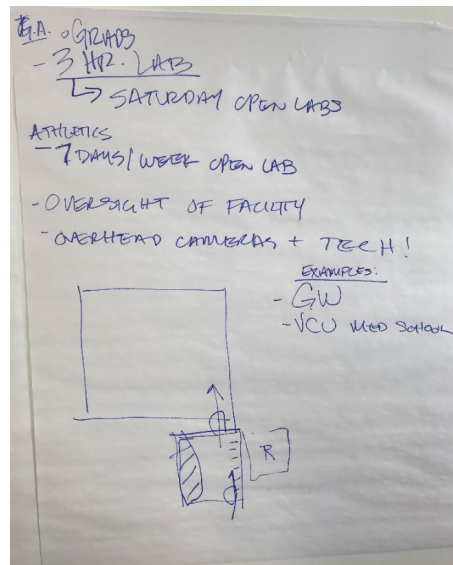 G.A. o GRADS
- 3 HR. LAB
↳ SATURDAY OPEN LABS
ATHLETICS
- 7 DAYS / WEEK OPEN LAB
- OVERSIGHT OF FACILITY
- OVERHEAD CAMERAS + TECH!
EXAMPLES:
- GW
- VCU MED SCHOOL
R